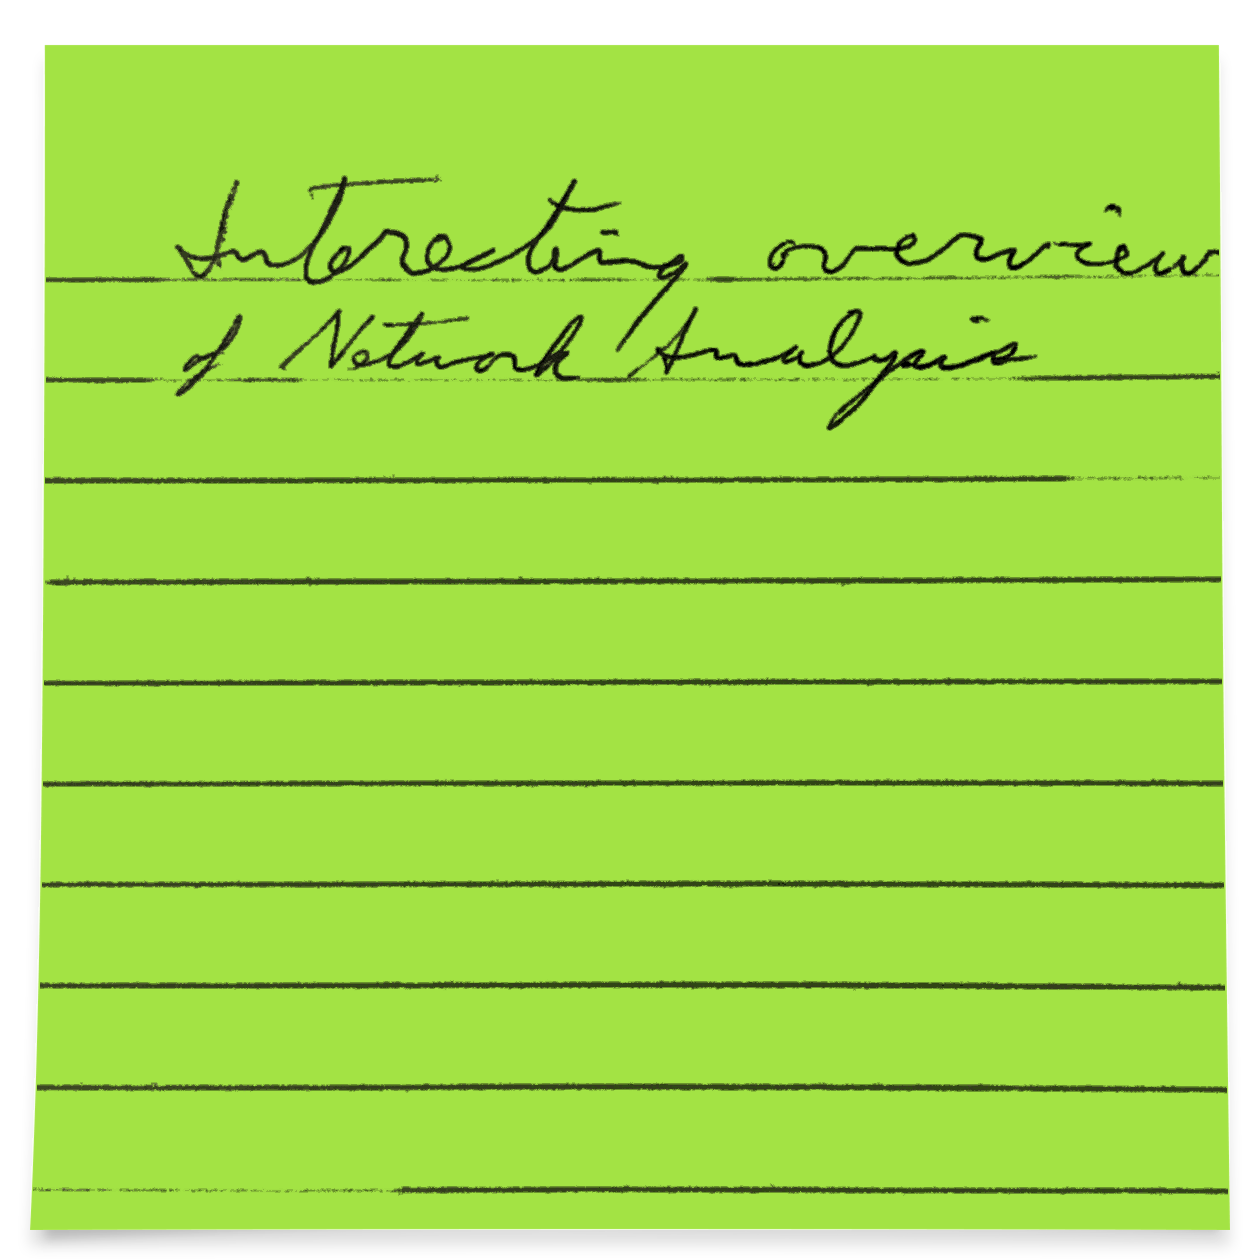 Interesting overview
of Network Analysis